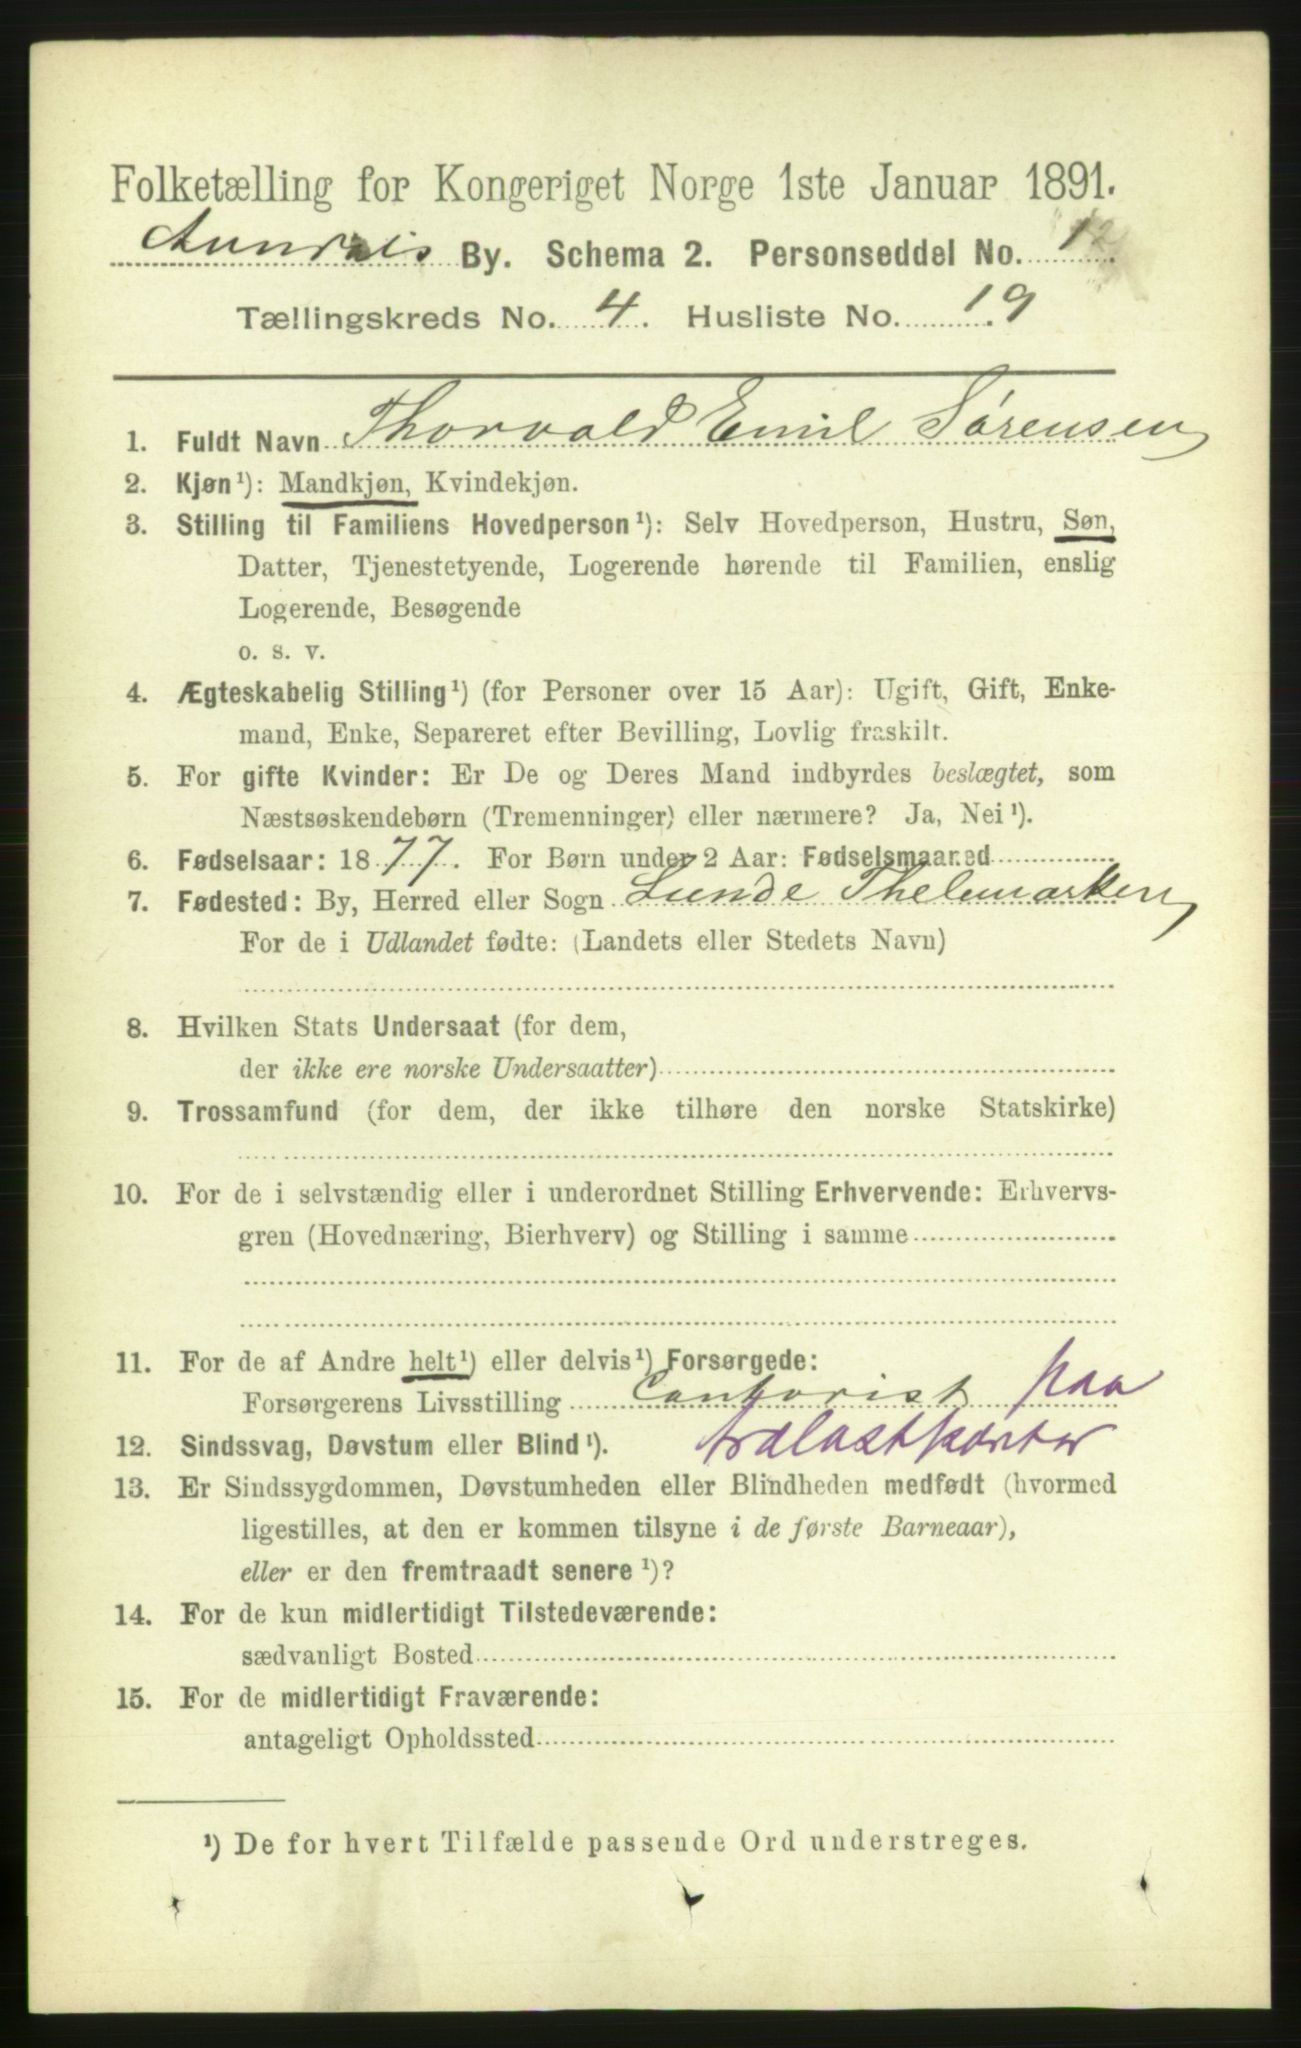 Folketælling for Kongeriget Norge 1ste Januar 1891.
Arendals By. Schema 2. Personseddel No. 12
Tællingskreds No. 4. Husliste No. 19
1. Fuldt Navn Thorvald Emil Sørensen
2. Kjøn¹): Mandkjøn, Kvindekjøn.
3. Stilling til Familiens Hovedperson¹): Selv Hovedperson, Hustru, Søn,
Datter, Tjenestetyende, Logerende hørende til Familien, enslig
Logerende, Besøgende
o. s. v.
4. Ægteskabelig Stilling¹) (for Personer over 15 Aar): Ugift, Gift, Enke-
mand, Enke, Separeret efter Bevilling, Lovlig fraskilt.
5. For gifte Kvinder: Er De og Deres Mand indbyrdes beslægtet, som
Næstsøskendebørn (Tremenninger) eller nærmere? Ja, Nei¹).
6. Fødselsaar: 1877. For Børn under 2 Aar: Fødselsmaaned
7. Fødested: By, Herred eller Sogn Lunde Thelemarken
For de i Udlandet fødte: (Landets eller Stedets Navn)
8. Hvilken Stats Undersaat (for dem,
der ikke ere norske Undersaatter)
9. Trossamfund (for dem, der ikke tilhøre den norske Statskirke)
10. For de i selvstændig eller i underordnet Stilling Erhvervende: Erhvervs-
gren (Hovednæring, Bierhverv) og Stilling i samme
11. For de af Andre helt¹) eller delvis¹) Forsørgede:
Forsørgerens Livsstilling Contorist paa
12. Sindssvag, Døvstum eller Blind¹). trælastkontor
13. Er Sindssygdommen, Døvstumheden eller Blindheden medfødt (hvormed
ligestilles, at den er kommen tilsyne i de første Barneaar),
eller er den fremtraadt senere¹)?
14. For de kun midlertidigt Tilstedeværende:
sædvanligt Bosted
15. For de midlertidigt Fraværende:
antageligt Opholdssted
¹) De for hvert Tilfælde passende Ord understreges.